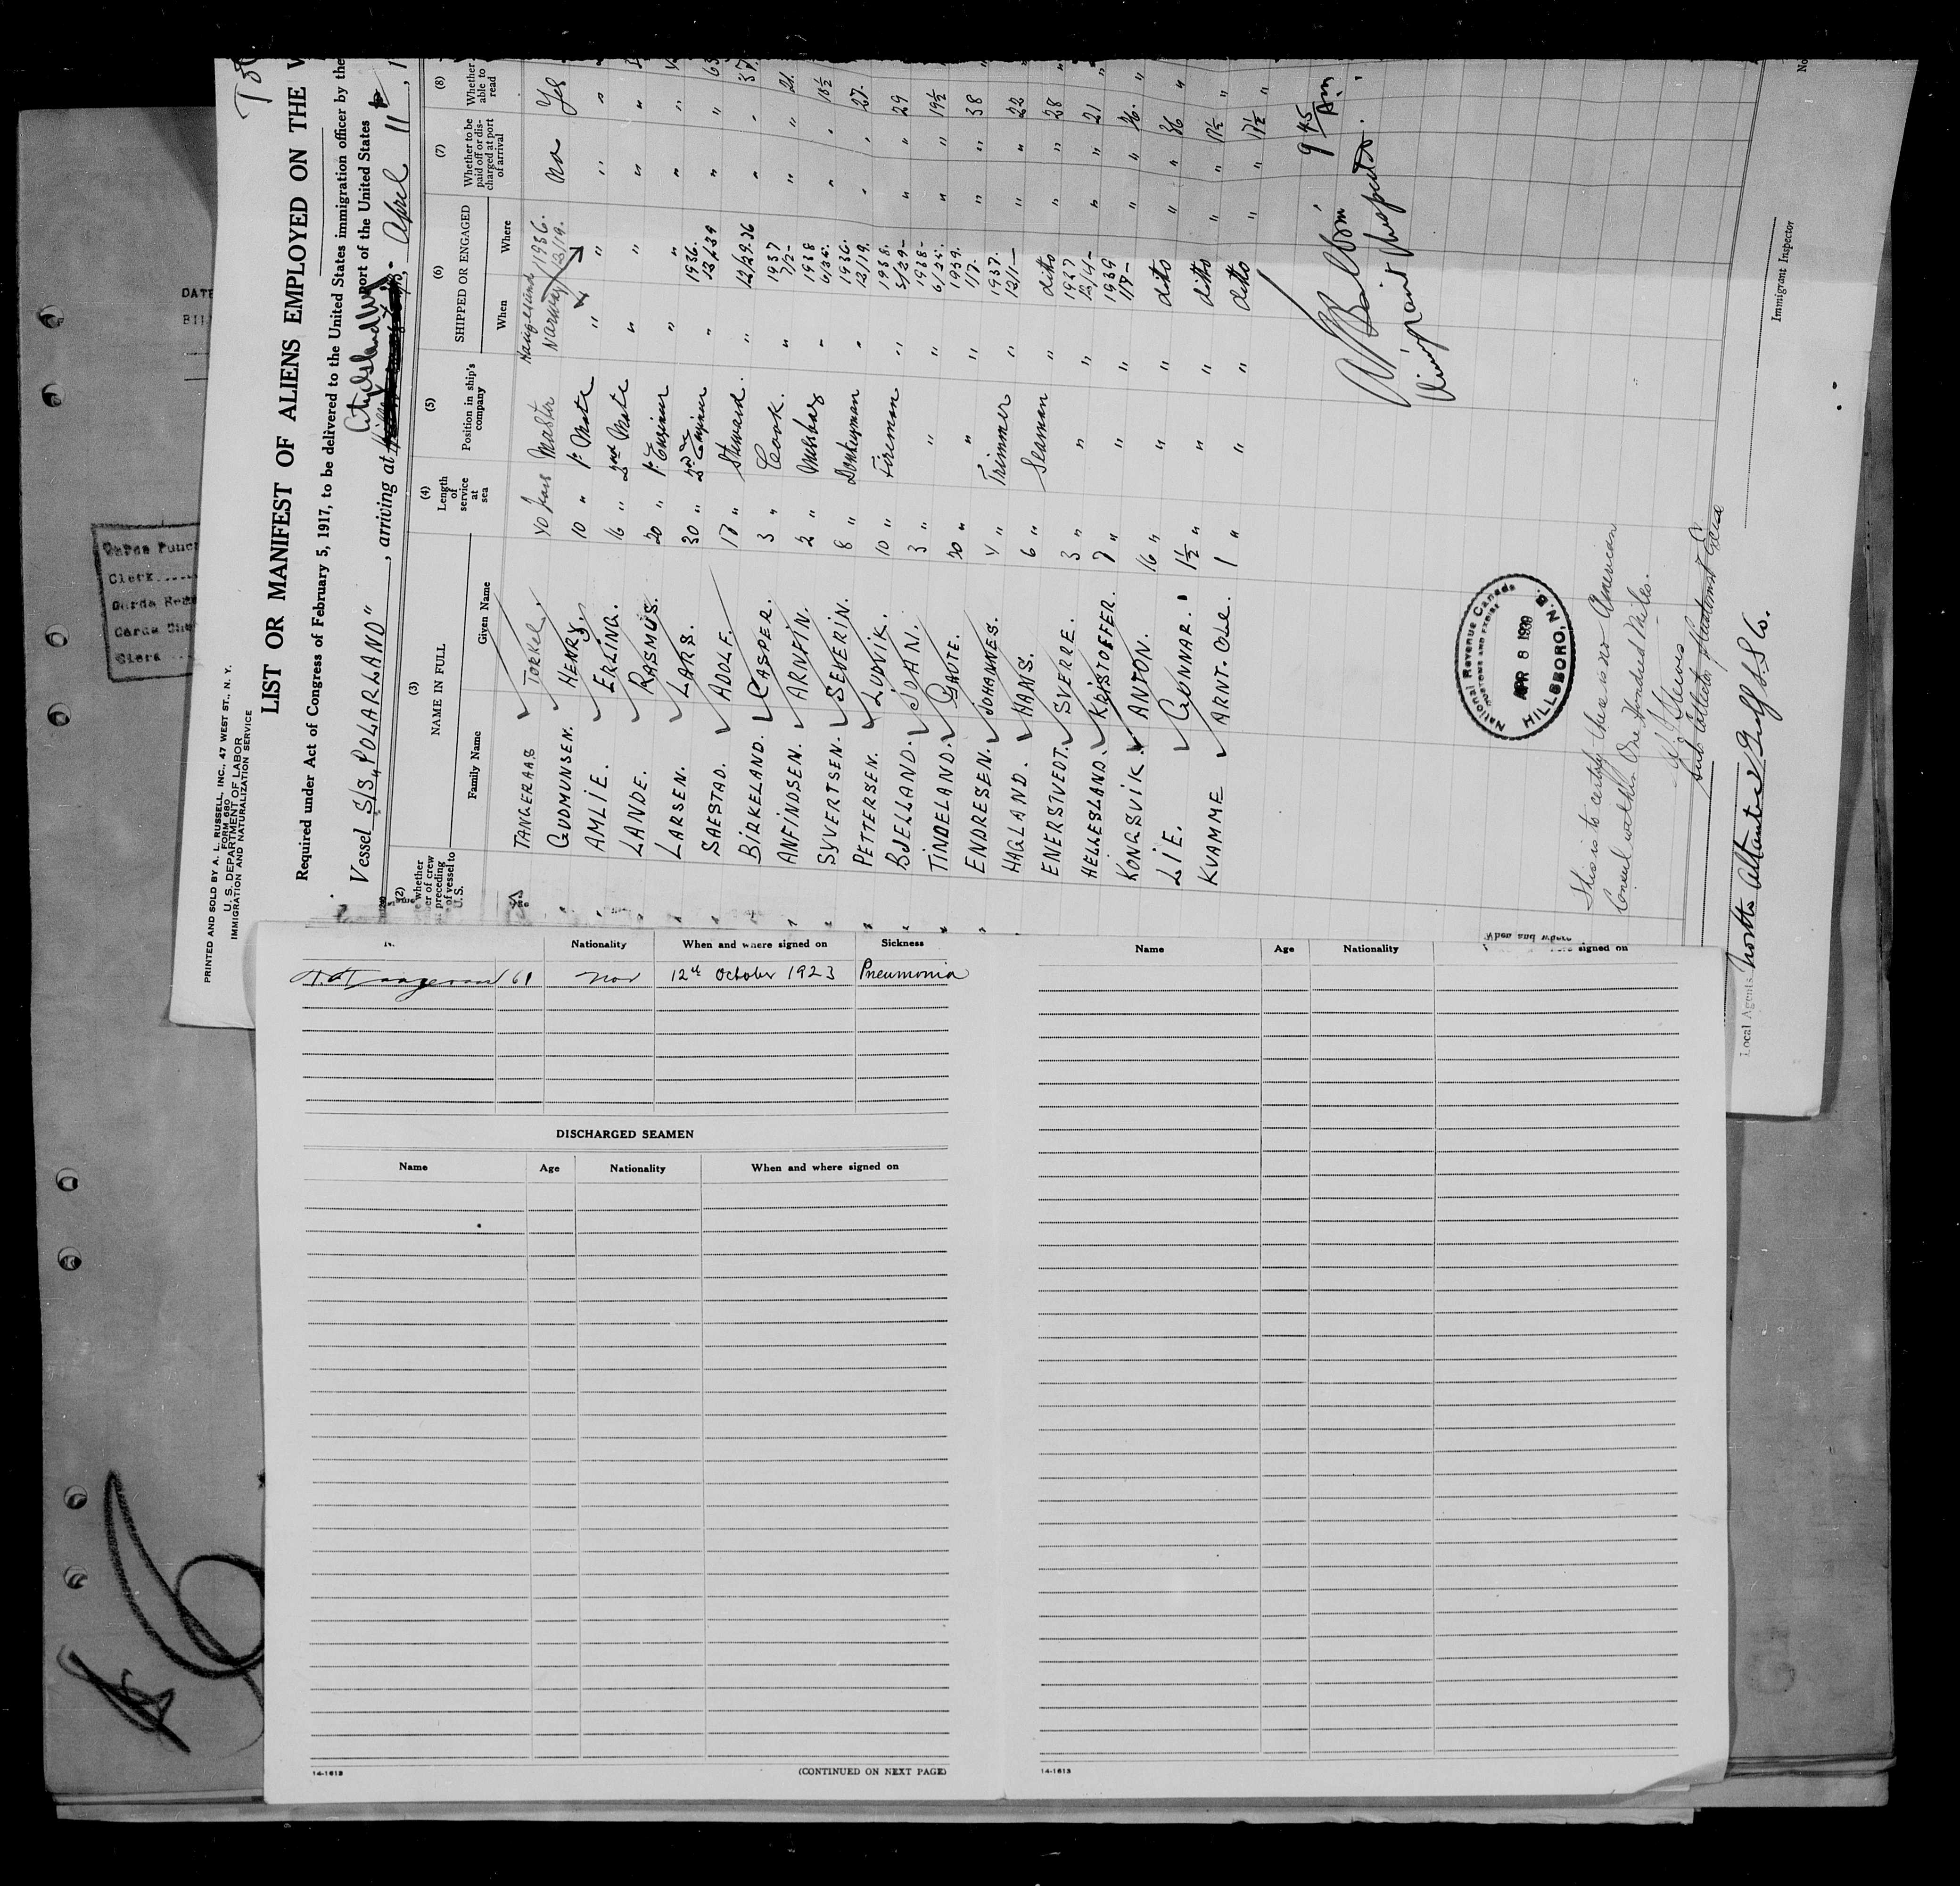 PRINTED AND SOLD BY A. L. RUSSELL, INC., 47 WEST ST., N. Y.
FORM 680
U. S. DEPARTMENT OF LABOR
IMMIGRATION AND NATURALIZATION SERVICE
LIST OR MANIFEST OF ALIENS EMPLOYED ON THE
Required under Act of Congress of February 5, 1917, to be delivered to the United States immigration officer by the
port of the United States
Vessel S/S „POLARLAND", arriving at City Island N.Y., April 11
(2) (3) (4) (5) (6) (7) (8)
whether er of crew preceding of vessel to U.S.
NAME IN FULL
Family Name Given Name
Length of service at sea
Position in ship's company
SHIPPED OR ENGAGED
When Where
Whether to be paid off or discharged at port of arrival
Whether able to read
TANGERAAS TORKEL. 40 years Master Haugesund Norway 1936. 12/19. No Yes
GUDMUNSEN. HENRY. 10 " 1. Mate " " " "
AMLIE. ERLING. 16 " 2nd Mate " " " "
LANDE. RASMUS. 20 " 1. Engineer " " " "
LARSEN. LARS. 30 " 2nd Engineer " 1936. 12/29 " " 63
SAESTAD. ADOLF. 17 " Steward. " 12/29.36 " " 37.
BIRKELAND. CASPER. 3 " Cook. " 1937 7/2- " " 21.
ANFINDSEN. ARNFIN. 2 " Messboy " 1938 6/25. " " 18½
SYVERTSEN. SEVERIN. 8 " Donkeyman " 1936. 12/19. " " 27.
PETTERSEN. LUDVIK. 10 " Fireman " 1938. 5/29- " " 29
BJELLAND. JOHAN. 3 " " " 1938- 6/25. " " 19½
TINDELAND. GAUTE. 20 " " " 1939. 1/7. " " 38
ENDRESEN. JOHANNES. 4 " Trimmer " 1937. 12/1— " " 22
HAGLAND. HANS. 6 " Seaman " ditto " " 28
ENERSTVEDT. SVERRE. 3 " " " 1937 12/4- " " 21
HELLESLAND. KRISTOFFER. 7 " " " 1939 1/7— " " 26.
KONGSVIK. ANTON. 16 " " " ditto " " 36
LIE. GUNNAR. 1½ " " " ditto " " 17½
KVAMME ARNT. OLE. 1 " " " ditto " " 17½
9 45 Am.
Immigrant Inspector.
National Revenue Canada
CUSTOMS AND EXCISE
APR 8 1939
HILLSBORO, N.B.
This is to certify there is no American
Consul within One Hundred Miles.
Sub Collector of Customs & Excise
Immigrant Inspector
No
Local Agents North Atlantic & Gulf S.S. Co.
DATE
Clerk
Cards
Cards
Clerk
Nationality When and where signed on Sickness
61 Nor 12th October 1923 Pneumonia
DISCHARGED SEAMEN
Name Age Nationality When and where signed on
14-1613
(CONTINUED ON NEXT PAGE)
When and where
Name Age Nationality signed on
14-1613